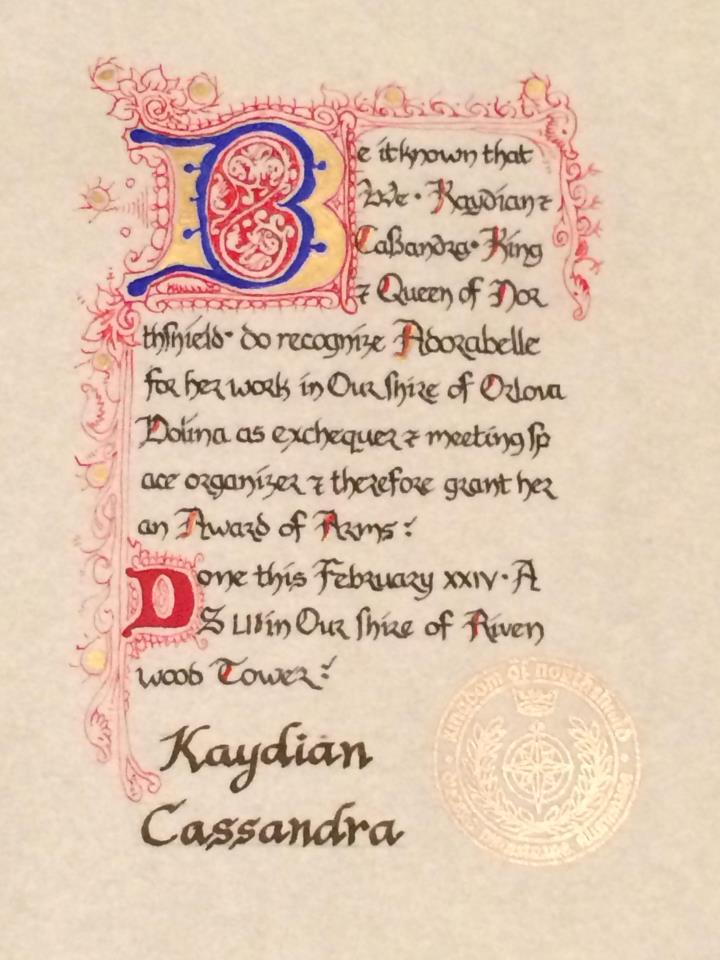 Be it known that
We · Kaydian &
Caßandra · King
& Queen of Nor
thshield · do recognize Adorabelle
for her work in Our shire of Orlova
Dolina as exchequer & meeting sp
ace organizer & therefore grant her
an Award of Arms:
Done this February xxiv · A
S in Our shire of Riven
wood Tower:
Kaydian
Cassandra
Kingdom of Northshield